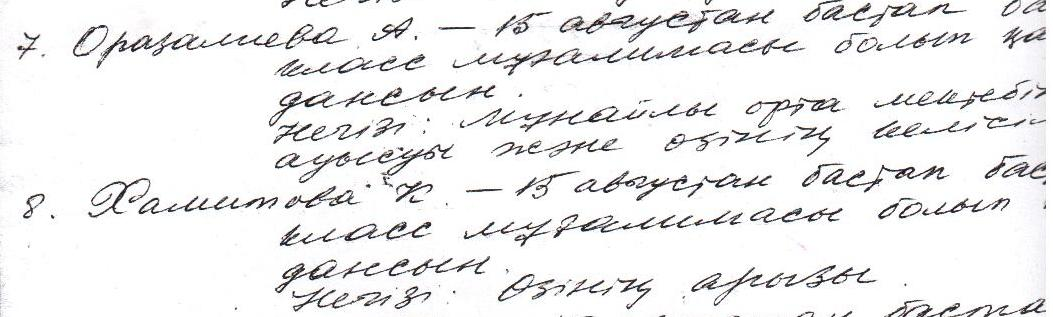 Негізі
7. Оразалиева А. – 15 августан бастап ба
класс мұғалимасы болып қа
дансын.
Негізі: Мұнайлы орта мектебін
ауысуы және өзінің келісім
8. Хамитова К. – 15 августан бастап бас
класс мұғалимасы болып
дансын.
Негізі: Өзінің арызы
баста